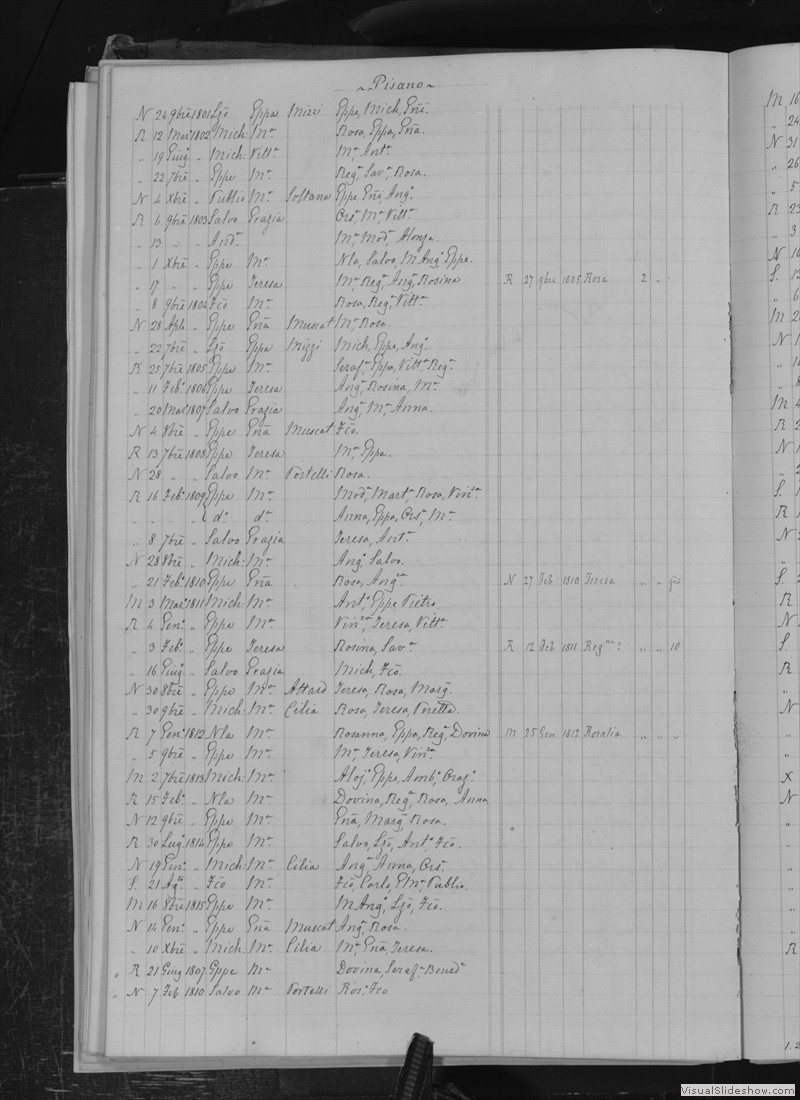 ~ Pisano ~
N 24 9bre 1801 Ljo Eppa Mizi Eppe, Mich, Gñi.
R 12 Mar 1802 Mich: Ma Rosa, Eppa, Gña.
„ 19 Giug „ Mich: Vitta Ma Anta
„ 22 7bre „ Eppe Ma Rega Sava Rosa.
N 4 Xbre „ Publio Ma Soltana Eppe Gñi, Ango
R 6 9bre 1803 Salvo Grazia Orsa Ma Vitta
„ 13 „ „ Anda Ma Moda Alonza.
„ 1 Xbre „ Eppe Ma Nla, Salvo, M Ango Eppe.
„ 17 „ „ Eppe Teresa Ma Rega Anga Rosina R 27 9bre 1805 Rosa 2 „ „
„ 8 9bre 1804 Fco Ma Rosa, Rega Vitta
N 28 Aple „ Eppe Gña Muscat Ma Rosa.
„ 22 7bre „ Ljo Eppa Mizzi Mich, Eppe, Ango
R 25 7bre 1805 Eppe Ma Serafa Eppa, Vitta Rega
„ 11 Feb 1806 Eppe Teresa Anga Rosina, Ma
„ 20 Mar 1807 Salvo Grazia Anga Ma Anna.
N 4 8bre „ Eppe Gña Muscat Fco.
R 13 7bre 1808 Eppe Teresa Ma Eppa.
N 28 „ „ Salvo Ma Portelli Rosa.
R 16 Feb 1809 Eppe Ma Moda Marta Rosa, Vinza
„ „ „ „ do do Anna, Eppa, Orsa Ma
„ 8 7bre „ Salvo Grazia Teresa, Anta
N 28 8bre „ Mich: Ma Ango Salvo.
„ 21 Feb 1810 Eppe Gña Rosa, Anga N 27 Feb 1810 Teresa „ „
M 3 Mar 1811 Mich: Ma Anto Eppe Pietro.
R 4 Gen „ Eppe Ma Vinza Teresa, Vitta
„ 3 Feb „ Eppe Teresa Rosina, Sava R 12 Feb 1811 Regna? „ „ 10
„ 16 Giug „ Salvo Grazia Mich, Fco.
N 30 8bre „ Eppe Ma Attard Teresa, Rosa, Marg.
„ 30 9bre „ Mich: Ma Cilia Rosa, Teresa,
R 7 Gen 1812 Nla Ma Rosanna, Eppa, Rega Dovina M 25 Gen 1812 Rosalia „ „ „
„ 5 9bre „ Eppe Ma Ma Teresa, Vinza
M 2 7bre 1813 Mich: Ma Aloj, Eppe, Ambo Grazo
R 15 Feb „ Nla Ma Dovina, Rega Rosa, Anna
N 12 9bre „ Eppe Ma Gña, Marg Rosa.
R 30 Lug 1814 Eppe Ma Salvo, Ljo, Anto Fco.
N 19 Gen „ Mich: Ma Cilia Anga Anna, Orsa
S. 21 Ago „ Fco Ma Fco, Carlo, Publio.
M 16 8bre 1815 Eppe Ma M Ango, Ljo, Fco.
N 14 Gen „ Eppe Gña Muscat Anga Rosa.
„ 10 Xbre „ Mich: Ma Cilia Ma Gña, Teresa.
„ R 21 Giug 1807 Eppe Ma Dovina, Serafa Beneda
„ N 7 Feb 1810 Salvo Ma Portelli Rosa Fco
VisualSlideshow.com